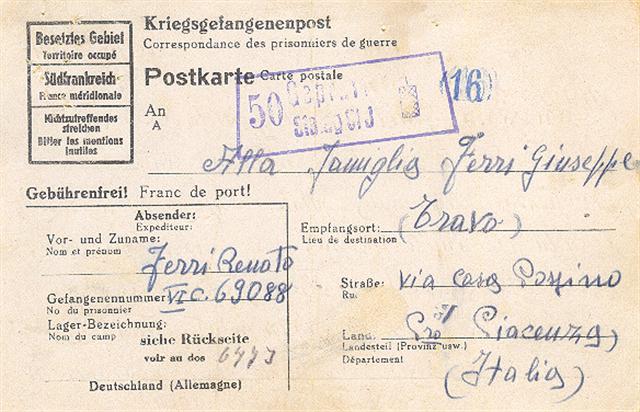 Besetztes Gebiet
Territoire occupé
Südfrankreich
France méridionale
Nichtzutreffendes
streichen
Biffer les mentions
inutiles
Kriegsgefangenenpost
Correspondance des prisonniers de guerre
Postkarte Carte postale
50 Geprüft
Stalag
(16)
An
A
Alla Famiglia Ferri Giuseppe
Gebührenfrei! Franc de port!
Absender:
Expediteur:
Vor- und Zuname:
Nom et prénom
Ferri Renato
Gefangenennummer VI C. 69088
No du prisonnier
Lager-Bezeichnung:
Nom du camp
siche Rückseite
voir au dos
Deutschland (Allemagne)
Empfangsort: (Travo)
Lieu de destination
Straße: via casa
Ru.
Land: Piacenza
Landesteil (Provinz usw.)
Département
(Italia)